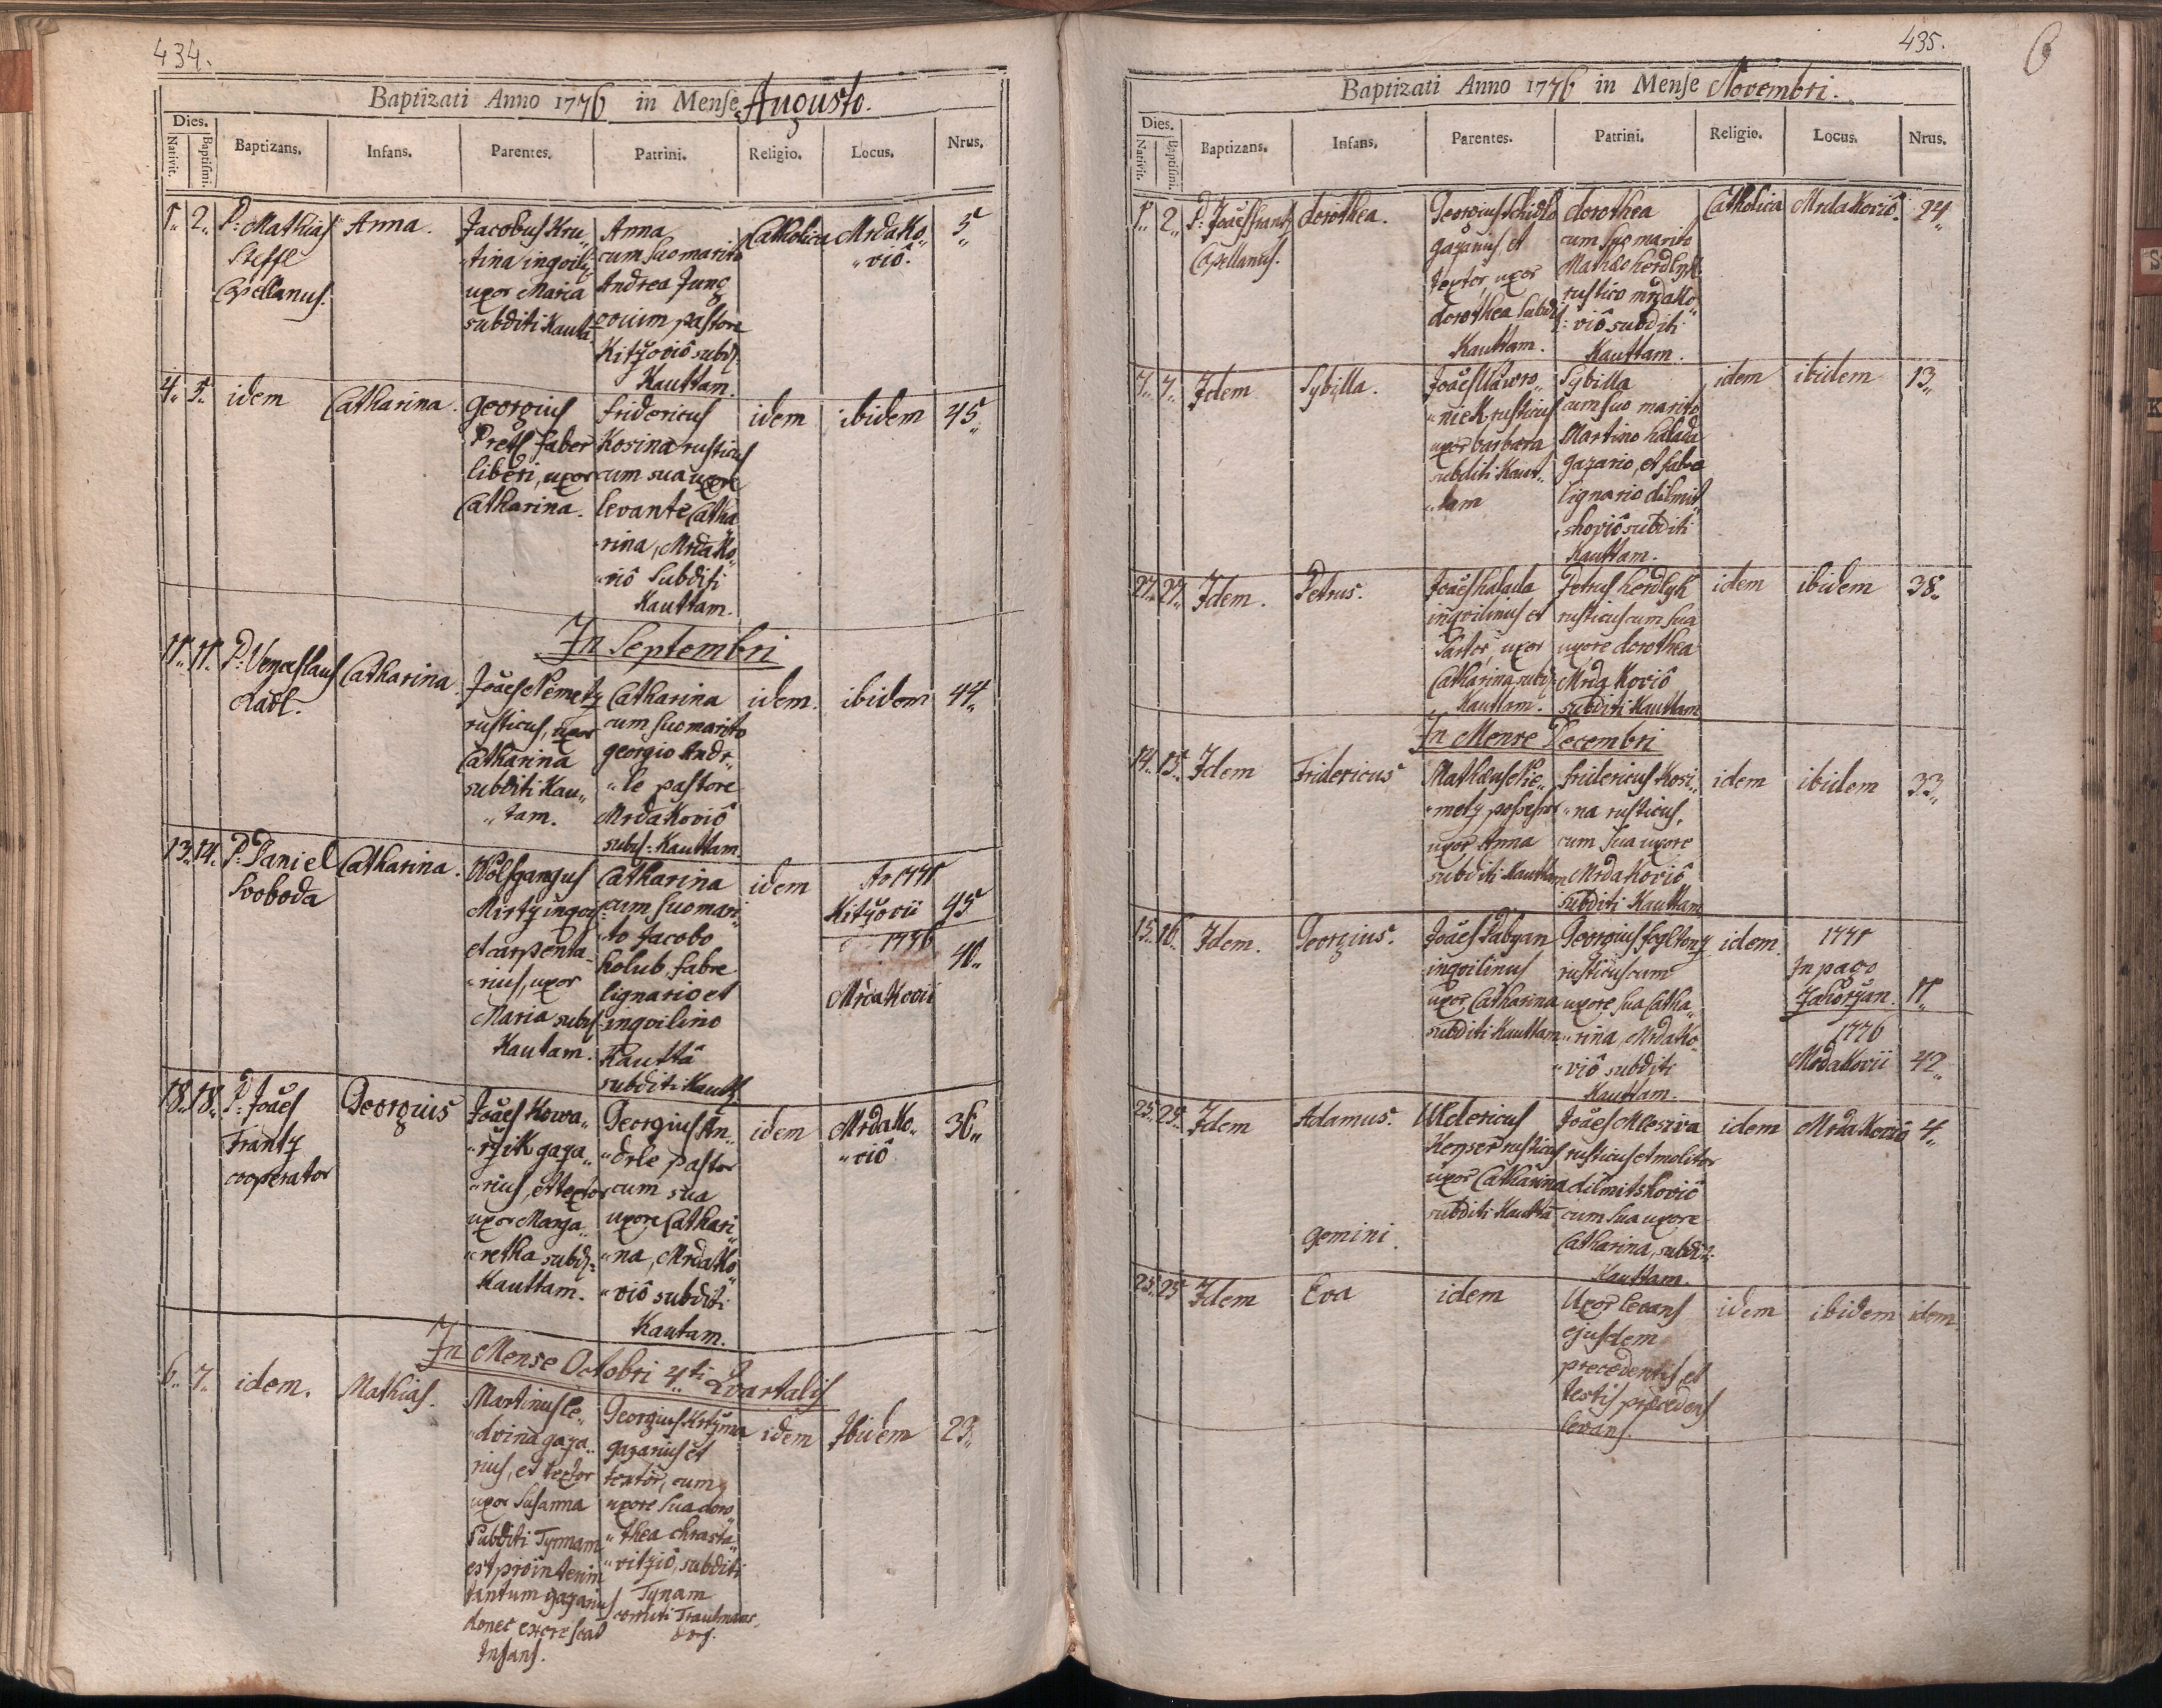 434.
Baptizati Anno 1776 in Mense Augusto.
Dies.
Nativit. Baptismi. Baptizans. Infans. Parentes. Patrini. Religio. Locus. Nrus.
1. 2. P: Mathias
Steffl
Capellanus.
Anna.
Jacobus Kru„
„tina inqvili„
uxor Maria
subditi Kautta.
Anna
cum suo marito
Andrea Jung
ovium pastore
Kitzovio subd.
Kauttam.
Catholica
MrdaKo„
„vio.
5„
4. 5. idem
Catharina.
Georgius
Pretl faber
liberi, uxor
Catharina.
fridericus
Kosina rusticus
cum sua uxore
levante Catha
rina, MrdaKo„
„vio Subditi
Kauttam.
idem
ibidem
45„
In Septembri
11. 11. P: Venceslaus
Radl.
Catharina.
Joães Nemetz
rusticus, uxor
Catharina
subditi Kau„
„tam.
Catharina
cum suo marito
georgio Andr„
„le pastore
MrdaKovio
subd: Kauttam.
idem.
ibidem
44„
13. 14. P: Daniel
Svoboda
Catharina.
Wolfgangus
Mirtz inqvi
et carpenta„
„rius, uxor
Maria subd
Kautam.
Catharina
cum suo mari„
„to Jacobo
holub, fabre
lignario et
inqvilino
Kauttã
subditi Kautt
idem
Ao 1771
Kitzovii
45
1776
MrdaKovii
40„
18. 18. P: Joães
Frantz
cooperator
Georgius
Joães Kowa„
„rzik gaza„
„rius, et textor
uxor Marga„
„retha subd:
Kauttam.
Georgius An„
„drle pastor
cum sua
uxore Cathari„
„na, MrdaKo„
„vio subditi
Kautam.
idem
MrdaKo„
„vio
36„
In Mense Octobri 4ti Qvartalis
6. 7. idem.
Mathias.
Martinus Le„
„dvina gaza„
rius, et textor
uxor Susanna
Subditi Tynnam
est pro interim
tantum gazarius
donec excrescat
Infans.
Georgius Krtzma
gazarius et
textor, cum
uxore sua doro
„thea chrasta„
„vitzio, subditi
Tynam
comiti Trautmans„
dorf.
idem
Ibidem
23„
435.
Baptizati Anno 1776 in Mense Novembri.
Dies.
Nativit. Baptismi. Baptizans. Infans. Parentes. Patrini. Religio. Locus. Nrus.
1. 2. P: Joães frantz
Capellanus.
dorothea.
Georgius Schidlo
gazarius, et
textor, uxor
dorothea subdi
Kauttam.
dorothea
cum suo marito
Mathæo herdlyk
rustico mrdaKo„
„vio subditi
Kauttam.
Catholica
MrdaKovio.
24„
7. 7. Idem
Sybilla.
Joães Wawro„
„nek, rusticus
uxor barbara
subditi Kaut„
„tam
Sybilla
cum suo marito
Martino halada
gazario, et fabro
lignario dilmit
„shovio subditi
Kauttam.
idem
ibidem
13„
27. 27. Idem.
Petrus.
Joães halada
inqvilinus et
Sartor, uxor
Catharina, subd
Kauttam.
Petrus herdlyk
rusticus cum sua
uxore dorothea
MrdaKovio
subditi Kauttam
idem
ibidem
38„
In Menre Decembri
14. 15. Idem
Fridericus
Mathæus Nie„
„metz possessor
uxor Anna
subditi Kauttam
fridericus Kosi„
„na rusticus,
cum sua uxore
MrdaKovio
subditi Kauttam
idem
ibidem
33„
15. 16. Idem.
Georgius.
Joães Fabyan
inqvilinus
uxor Catharina
subditi Kauttam
Georgius
rusticus cum
uxore sua Catha„
„rina, MrdaKo„
„vio subditi
Kauttam.
idem.
1771
In pago
Zahorzan.
11„
1776
MrdaKovii
42„
25. 25. Idem
Adamus.
Uldericus
Kenser rusticus
uxor Catharina
subditi Kauttã
Joães Mlesiva
rusticus et molitor
dilmitshovio
cum sua uxore
Catharina, subdi:
Kauttam.
idem
MrdaKovio
4„
gemini.
25. 25. Idem
Eva
idem
Uxor levans
ejusdem
precedentis, et
testis præcedens
levans.
idem
ibidem
idem.